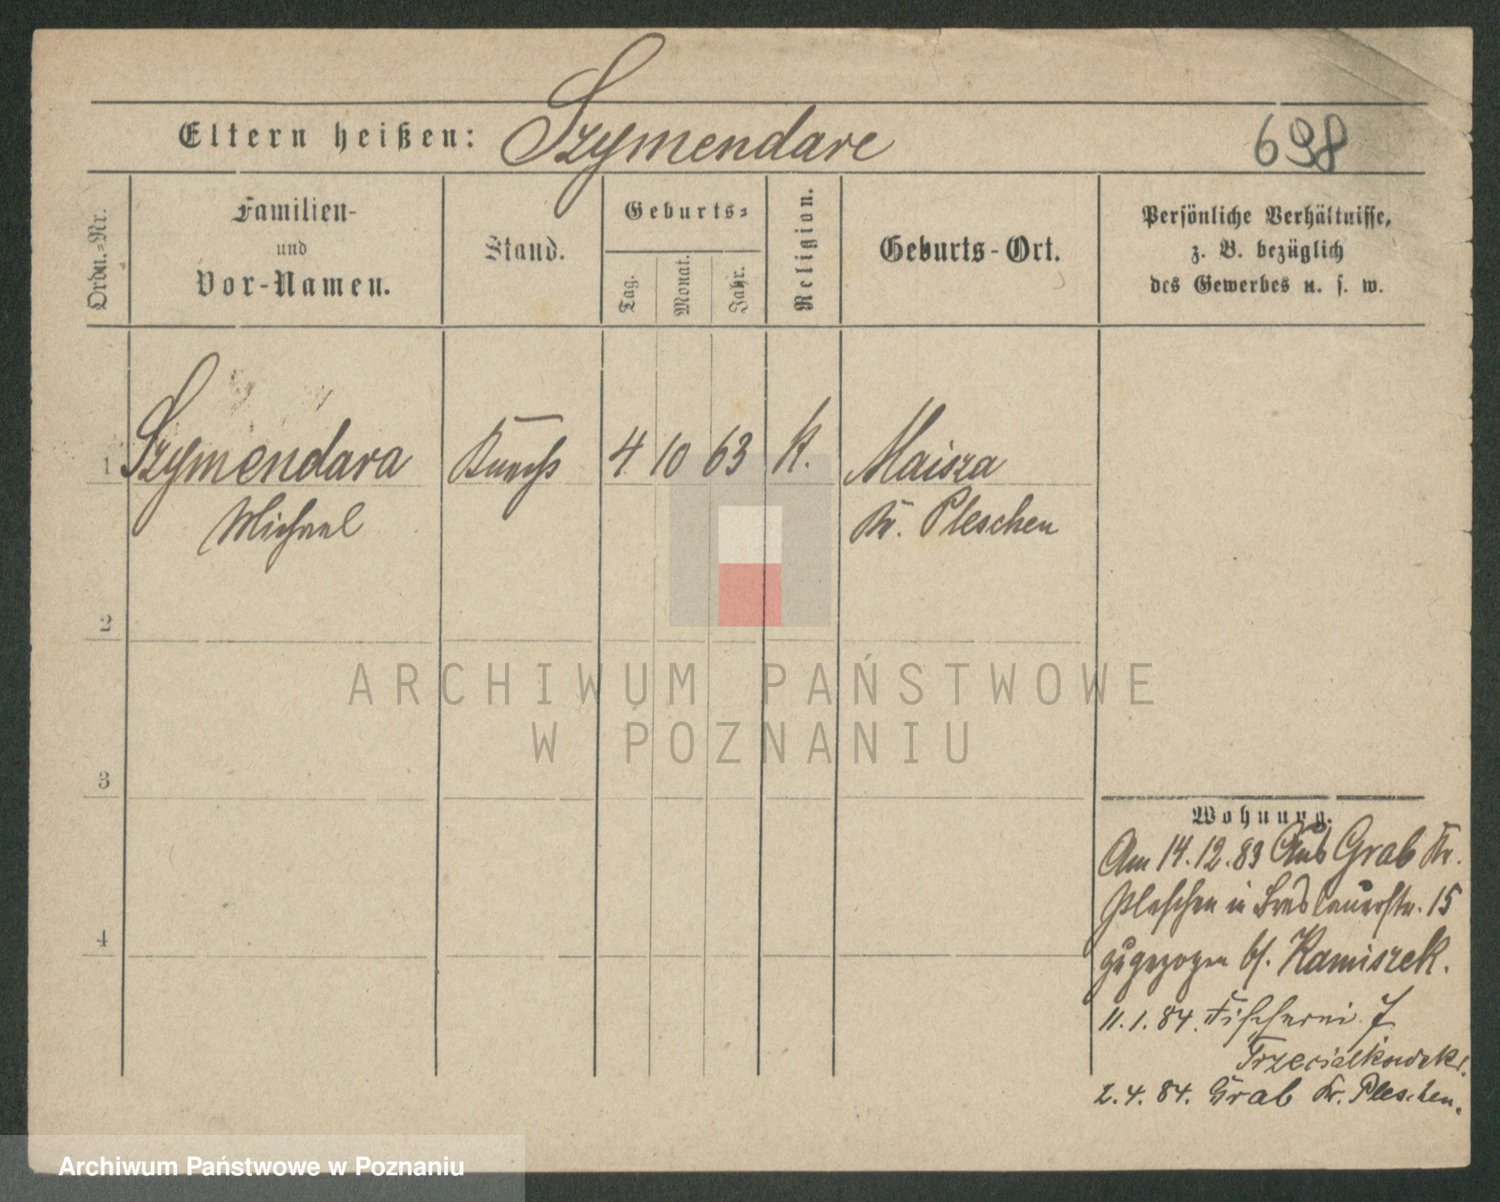 Eltern heißen: Szymendare
698
Ordn.-Nr.
Familien-
und
Vor-Namen.
Stand.
Geburts-
Tag.
Monat.
Jahr.
Religion.
Geburts-Ort.
Persönliche Verhältnisse,
z. B. bezüglich
des Gewerbes u. s. w.
1 Szymendara Knecht 4 10 63 K. Maisza
Michael Kr. Pleschen
2
3
4
ARCHIWUM PAŃSTWOWE
W POZNANIU
Wohnung.
Am 14.12.83 Aus Grab Kr.
Pleschen in Breslauerstr. 15
zugezogen bs. Kamiszek.
11.1.84. Fischerei 7
Trzecialkowski.
2.4.84. Grab Kr. Pleschen.
Archiwum Państwowe w Poznaniu